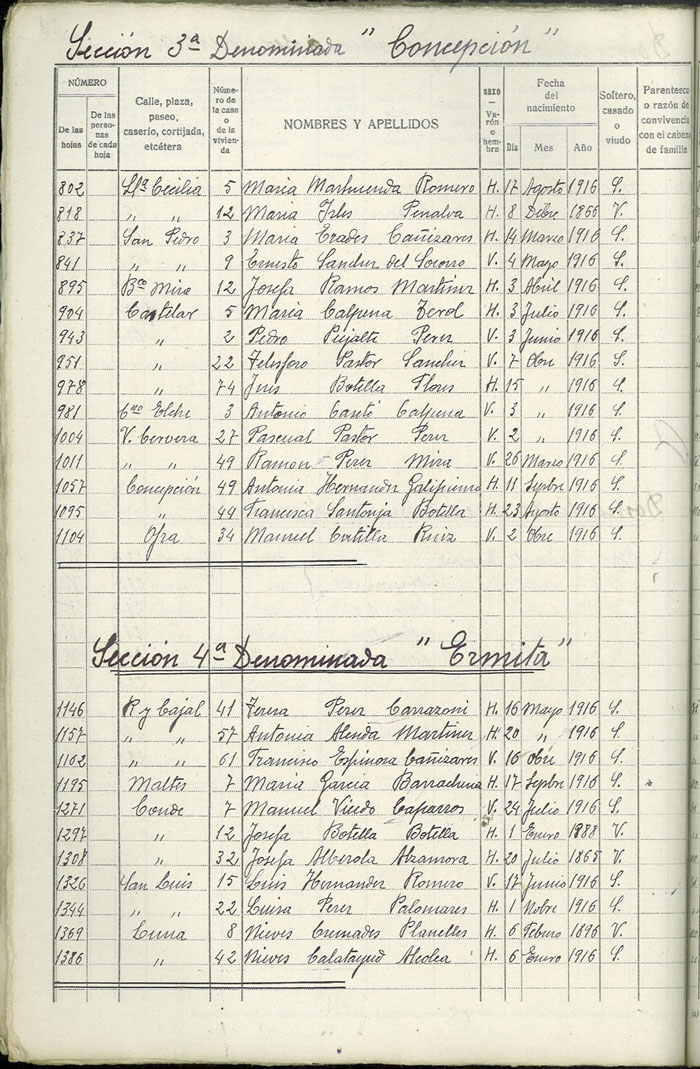 Sección 3ª Denominada "Concepción"
NÚMERO
De las hojas
De las personas de cada hoja
Calle, plaza, paseo, caserío, cortijada, etcétera
Número de la casa o de la vivienda
NOMBRES Y APELLIDOS
SEXO — Varón o hembra
Fecha del nacimiento
Día Mes Año
Soltero, casado o viudo
Parentesco o razón de convivencia con el cabeza de familia
802 Stª Cecilia 5 Maria Marhuenda Romero H. 17 Agosto 1916 S.
818 " " 12 Maria Isles Penalva H. 8 Dibre 1856 V.
837 San Pedro 3 Maria Erades Cañizares H. 14 Marzo 1916 S.
841 " " 9 Ernesto Sanchez del Socorro V. 4 Mayo 1916 S.
895 Bco Mira 12 Josefa Ramos Martinez H. 3 Abril 1916 S.
904 Castelar 5 Maria Calpena Terol H. 3 Julio 1916 S.
943 " 2 Pedro Pujalte Perez V. 3 Junio 1916 S.
951 " 22 Telesforo Pastor Sanchez V. 7 Obre 1916 S.
978 " 74 Ines Botella Flores H. 15 " 1916 S.
981 Cno Elche 3 Antonio Cantó Calpena V. 3 " 1916 S.
1004 V. Cervera 27 Pascual Pastor Perez V. 2 " 1916 S.
1011 " " 49 Ramon Perez Mira V. 26 Marzo 1916 S.
1057 Concepción 49 Antonia Hernandez H. 11 Sepbre 1916 S.
1095 " 44 Francisca Santonja Botella H. 23 Agosto 1916 S.
1104 Ofra 34 Manuel Ruiz V. 2 Obre 1916 S.
Sección 4ª Denominada "Ermita"
1146 R y Cajal 41 Teresa Perez Carrazoni H. 16 Mayo 1916 S.
1157 " " 57 Antonia Alenda Martinez H. 20 " 1916 S.
1162 " " 61 Francisco Espinosa Cañizares V. 16 Obre 1916 S.
1195 Maltes 7 Maria Garcia Barrachina H. 17 Sepbre 1916 S.
1271 Conde 7 Manuel Viedo Caparros V. 24 Julio 1916 S.
1297 " 12 Josefa Botella Botella H. 1 Enero 1888 V.
1308 " 32 Josefa Alberola Alzamora H. 20 Julio 1865 V.
1326 San Luis 15 Luis Hernandez Romero V. 17 Junio 1916 S.
1344 " " 22 Luisa Perez Palomares H. 1 Nobre 1916 S.
1369 Luna 8 Nieves Cremades Planelles H. 6 Febrero 1896 V.
1386 " 42 Nieves Calatayud Alcolea H. 6 Enero 1916 S.